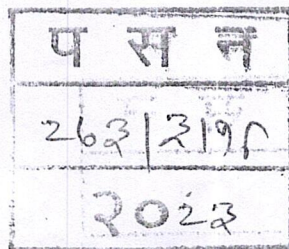 प स न
२६३|३|१८
२०२३